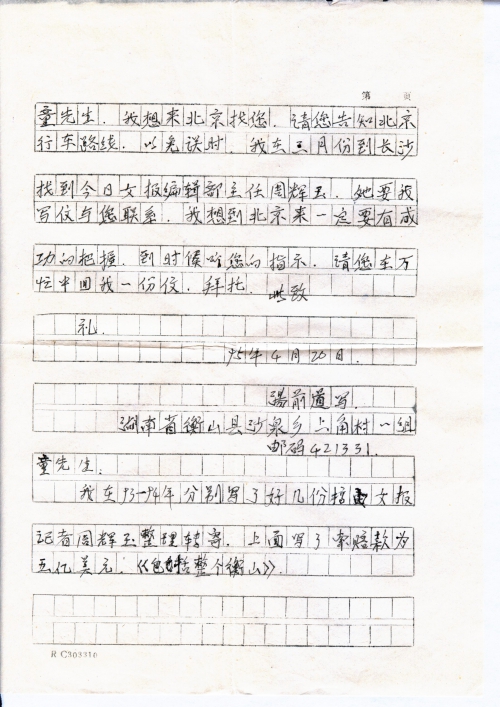 第 页
童先生. 我想来北京找您. 请您告知北京
行车路线. 以免误时. 我在三月份到长沙
找到今日女报编辑部主任周辉玉. 她要我
写信与您联系. 我想到北京来一定要有成
功的把握. 到时候听您的指示. 请您在万
忙中回我一份信. 拜托. 此致
礼.
95年4月20日.
汤前道写.
湖南省衡山县沙泉乡上角村一组
邮码421331.
童先生:
我在93—94年分别写了好几份给女报
记者周辉玉整理转寄. 上面写了索赔款为
五亿美元. 《《包括整个衡山》》.
R C303310